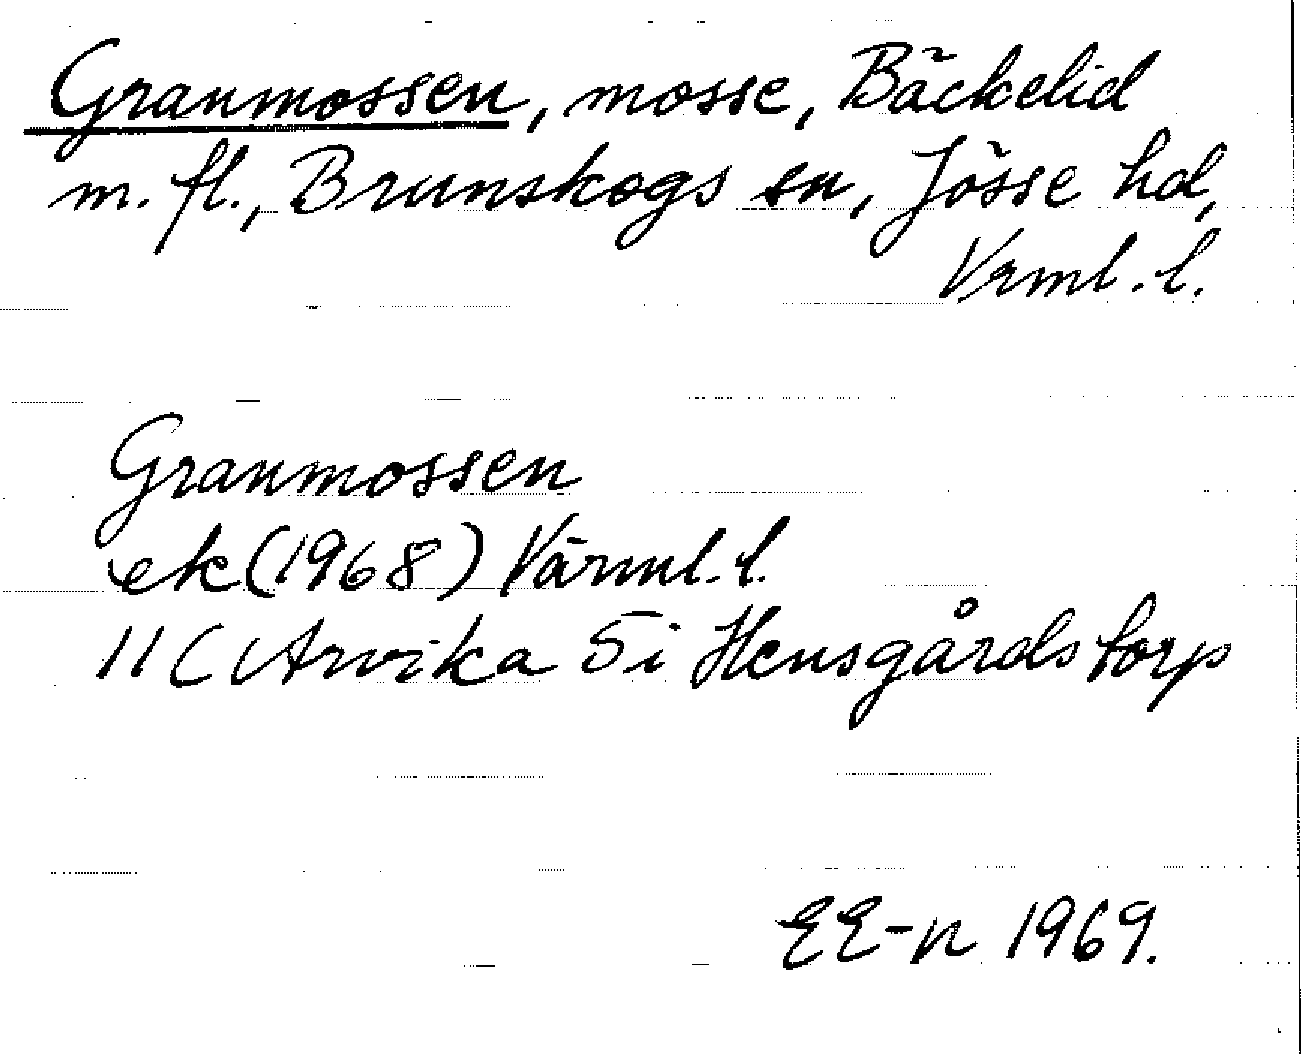 Granmossen, mosse, Bäckelid
m. fl., Brunskogs sn, Jösse hd,
Vrml. l.
Granmossen
ek (1968) Värml. l.
11 C Arvika 5 i Hensgårdstorp
EE-n 1969.